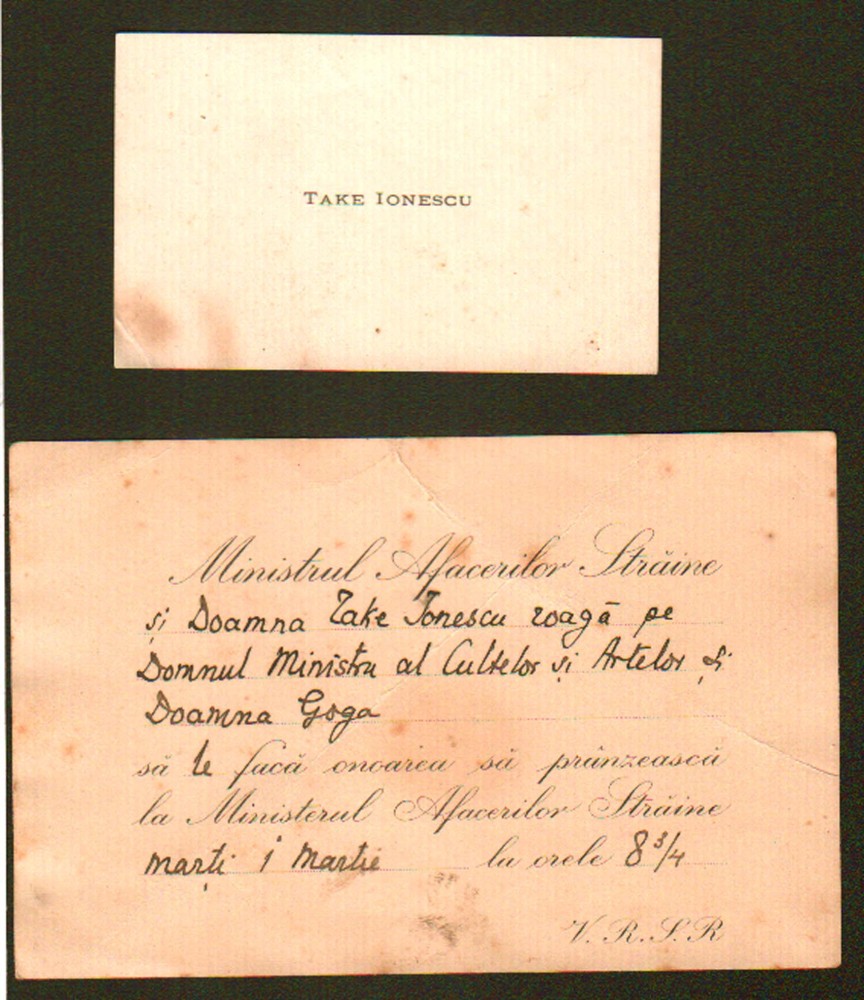 TAKE IONESCU
Ministrul Afacerilor Străine
și Doamna Take Ionescu roagă pe
Domnul Ministru al Cultelor și Artelor și
Doamna Goga
să le facă onoarea să prânzească
la Ministerul Afacerilor Străine
marți 1 Martie la orele 8 3/4
V. R. S. R